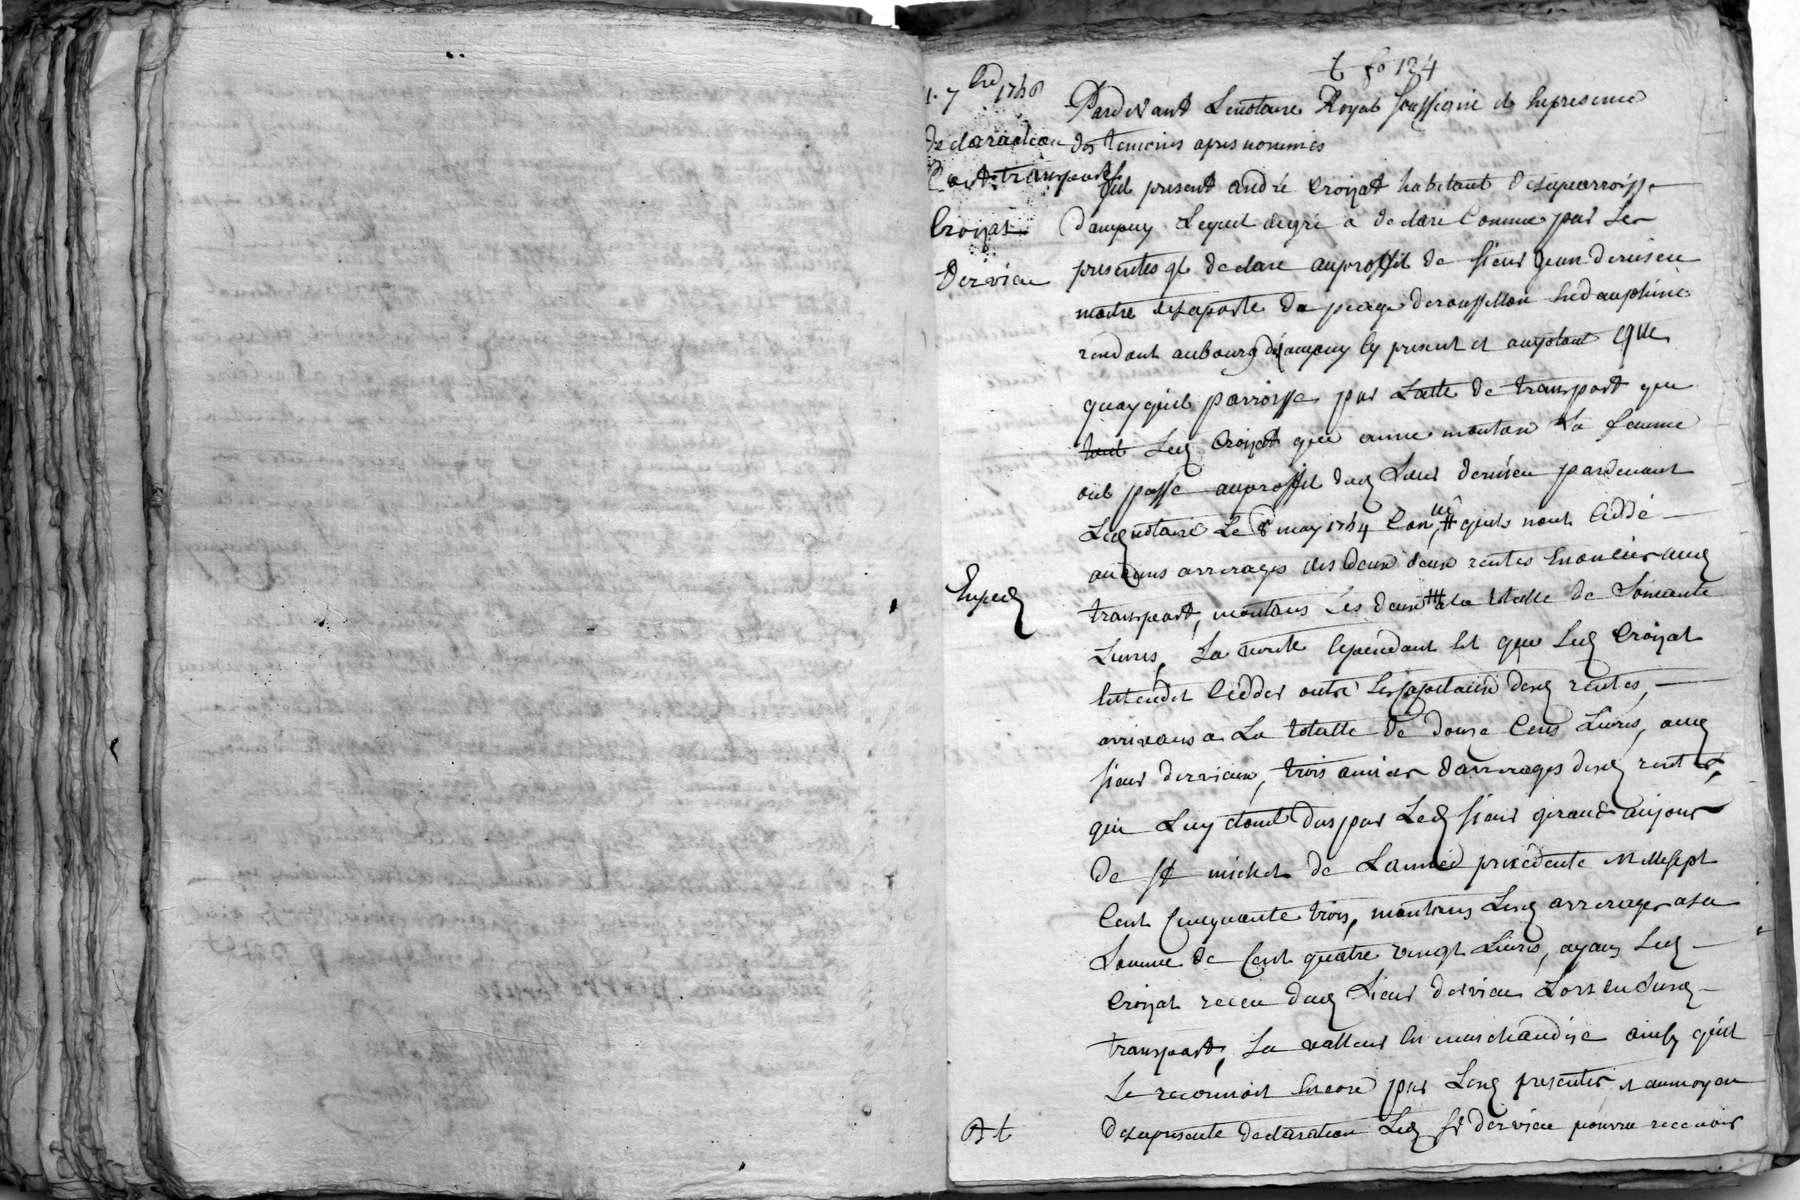 fo 124
1. 7bre 1756
Declaration
Croizat
Dervieu
Expedé
Pardevant Lenotaire Royal soussigné et enpresence
des temoins apres nommés
fut present andré Croizat habitant delaparroisse
dampuy Lequel degré a declaré comme par Les
presentes il declare auproffit de sieur jean dervieu
maitre delaposte du peage deroussillon endauphiné
rendant aubourg dampuy icy present et aceptant que
quoyquil parroisse par Lacte de transport que
tant Led Croizat que anne montane sa femme
ont passé auproffit dud sieur dervieu pardevant
Led notaire Le 8 may 1754 quils nont ceddé
aucuns arrerages des deux rentes enoncées aud
transport, montans Les deux ala totalle de soixante
Livres, La verité cependant est que Led Croizat
entendit cedder outre Lescapitaux desd rentes,
arrivans a La totalle de douze cens Livres, aud
sieur dervieux, trois années darrerages desd rentes,
qui Luy etoint dus par Led sieur giraud aujour
de st michel de Lannée precedente millesept
cent cinquante trois, montans Lesd arrerages ala
somme de cent quatre vingt Livres, ayant Led
Croizat receu dud sieur dervieu Lors dud
transport, La valleur en marchandise ainsy quil
Le reconnoit encore par Lesd presentes, et aumoyen
delapresente declaration Led sr dervieu pourra recevoir